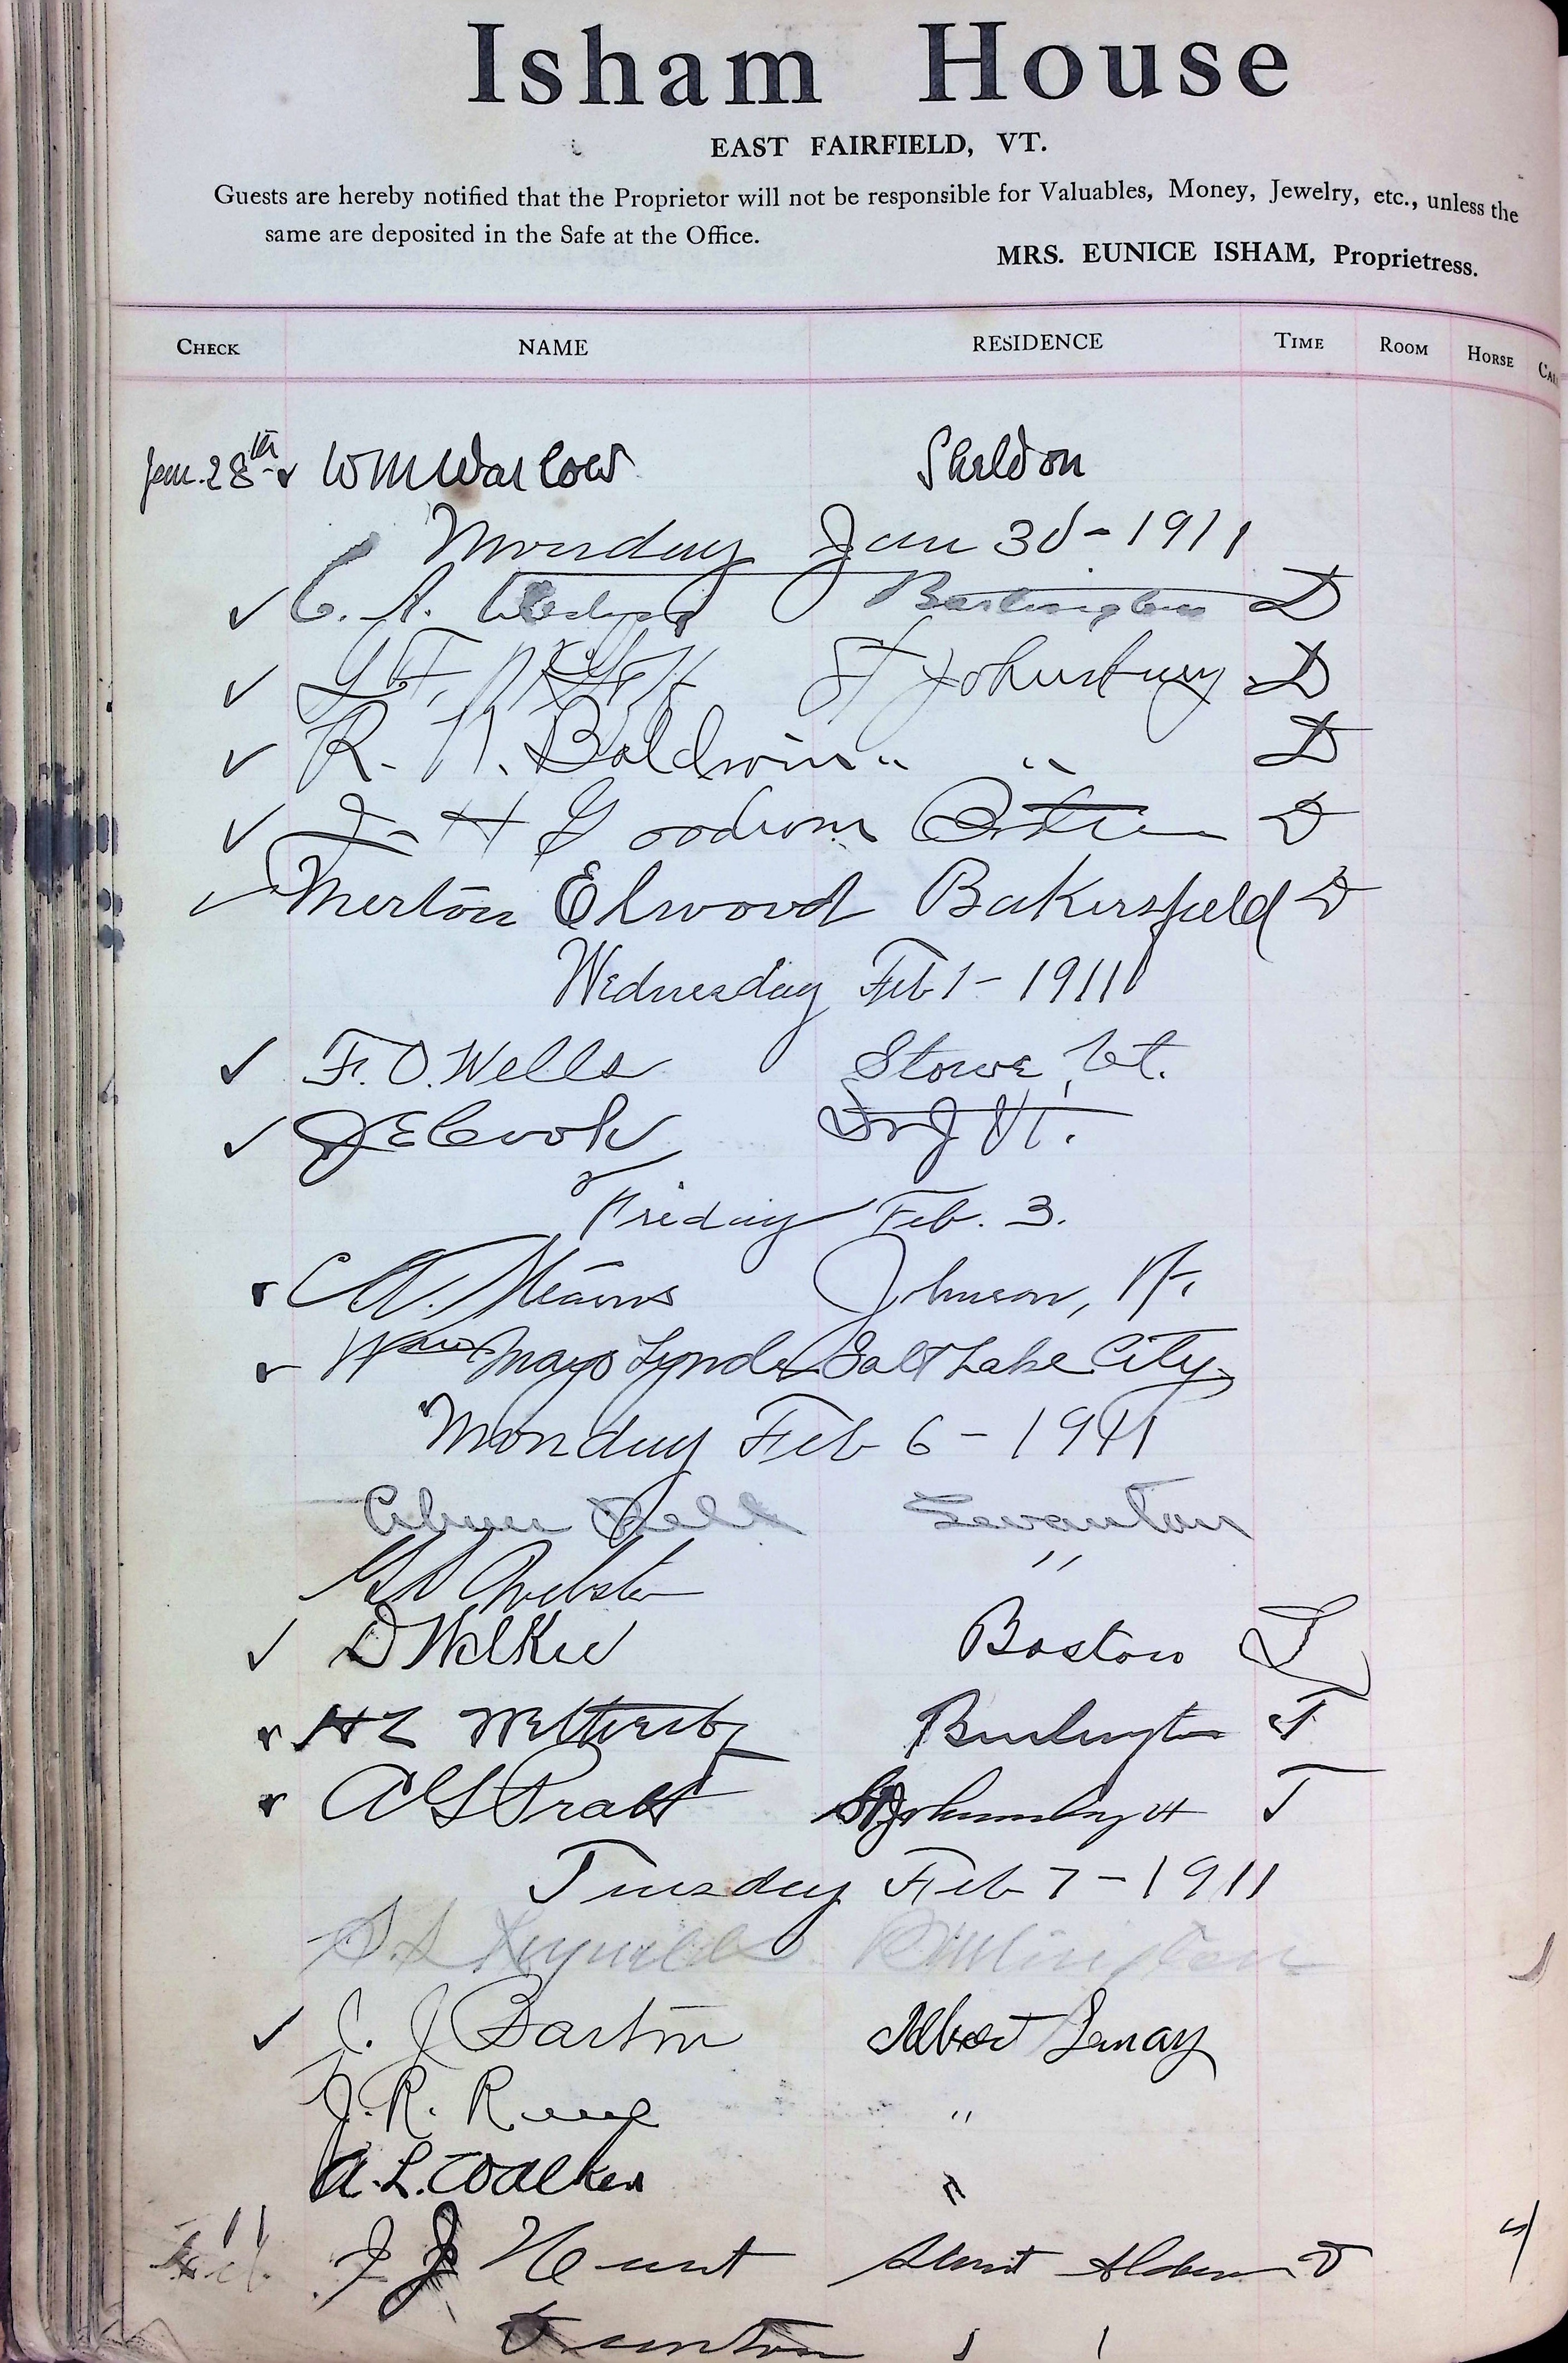 Isham House
EAST FAIRFIELD, VT.
Guests are hereby notified that the Proprietor will not be responsible for Valuables, Money, Jewelry, etc., unless the
same are deposited in the Safe at the Office.
MRS. EUNICE ISHAM, Proprietress.
CHECK NAME RESIDENCE TIME ROOM HORSE
Jan. 28th Wm Warlow Sheldon
Monday Jan 30 - 1911
C. A. Burlington D
St Johnsbury D
R. N. Baldwin " " D
H Goodwin D
Merton Elwood Bakersfield D
Wednesday Feb 1 - 1911
F. O. Wells Stowe, Vt.
J E Cook Vt.
Friday Feb. 3.
Stearns Johnson, Vt.
Mayo Lynde Salt Lake City
Monday Feb 6 - 1911
Bell Swanton
Webster "
D Walker Boston
H L Wetherby Burlington T
A G Pratt St Johnsbury Vt T
Tuesday Feb 7 - 1911
Reynolds Burlington
J. J Barton Albert Lemay
J. R. "
A. L. Walker "
Feb. 11 J J Hunt D